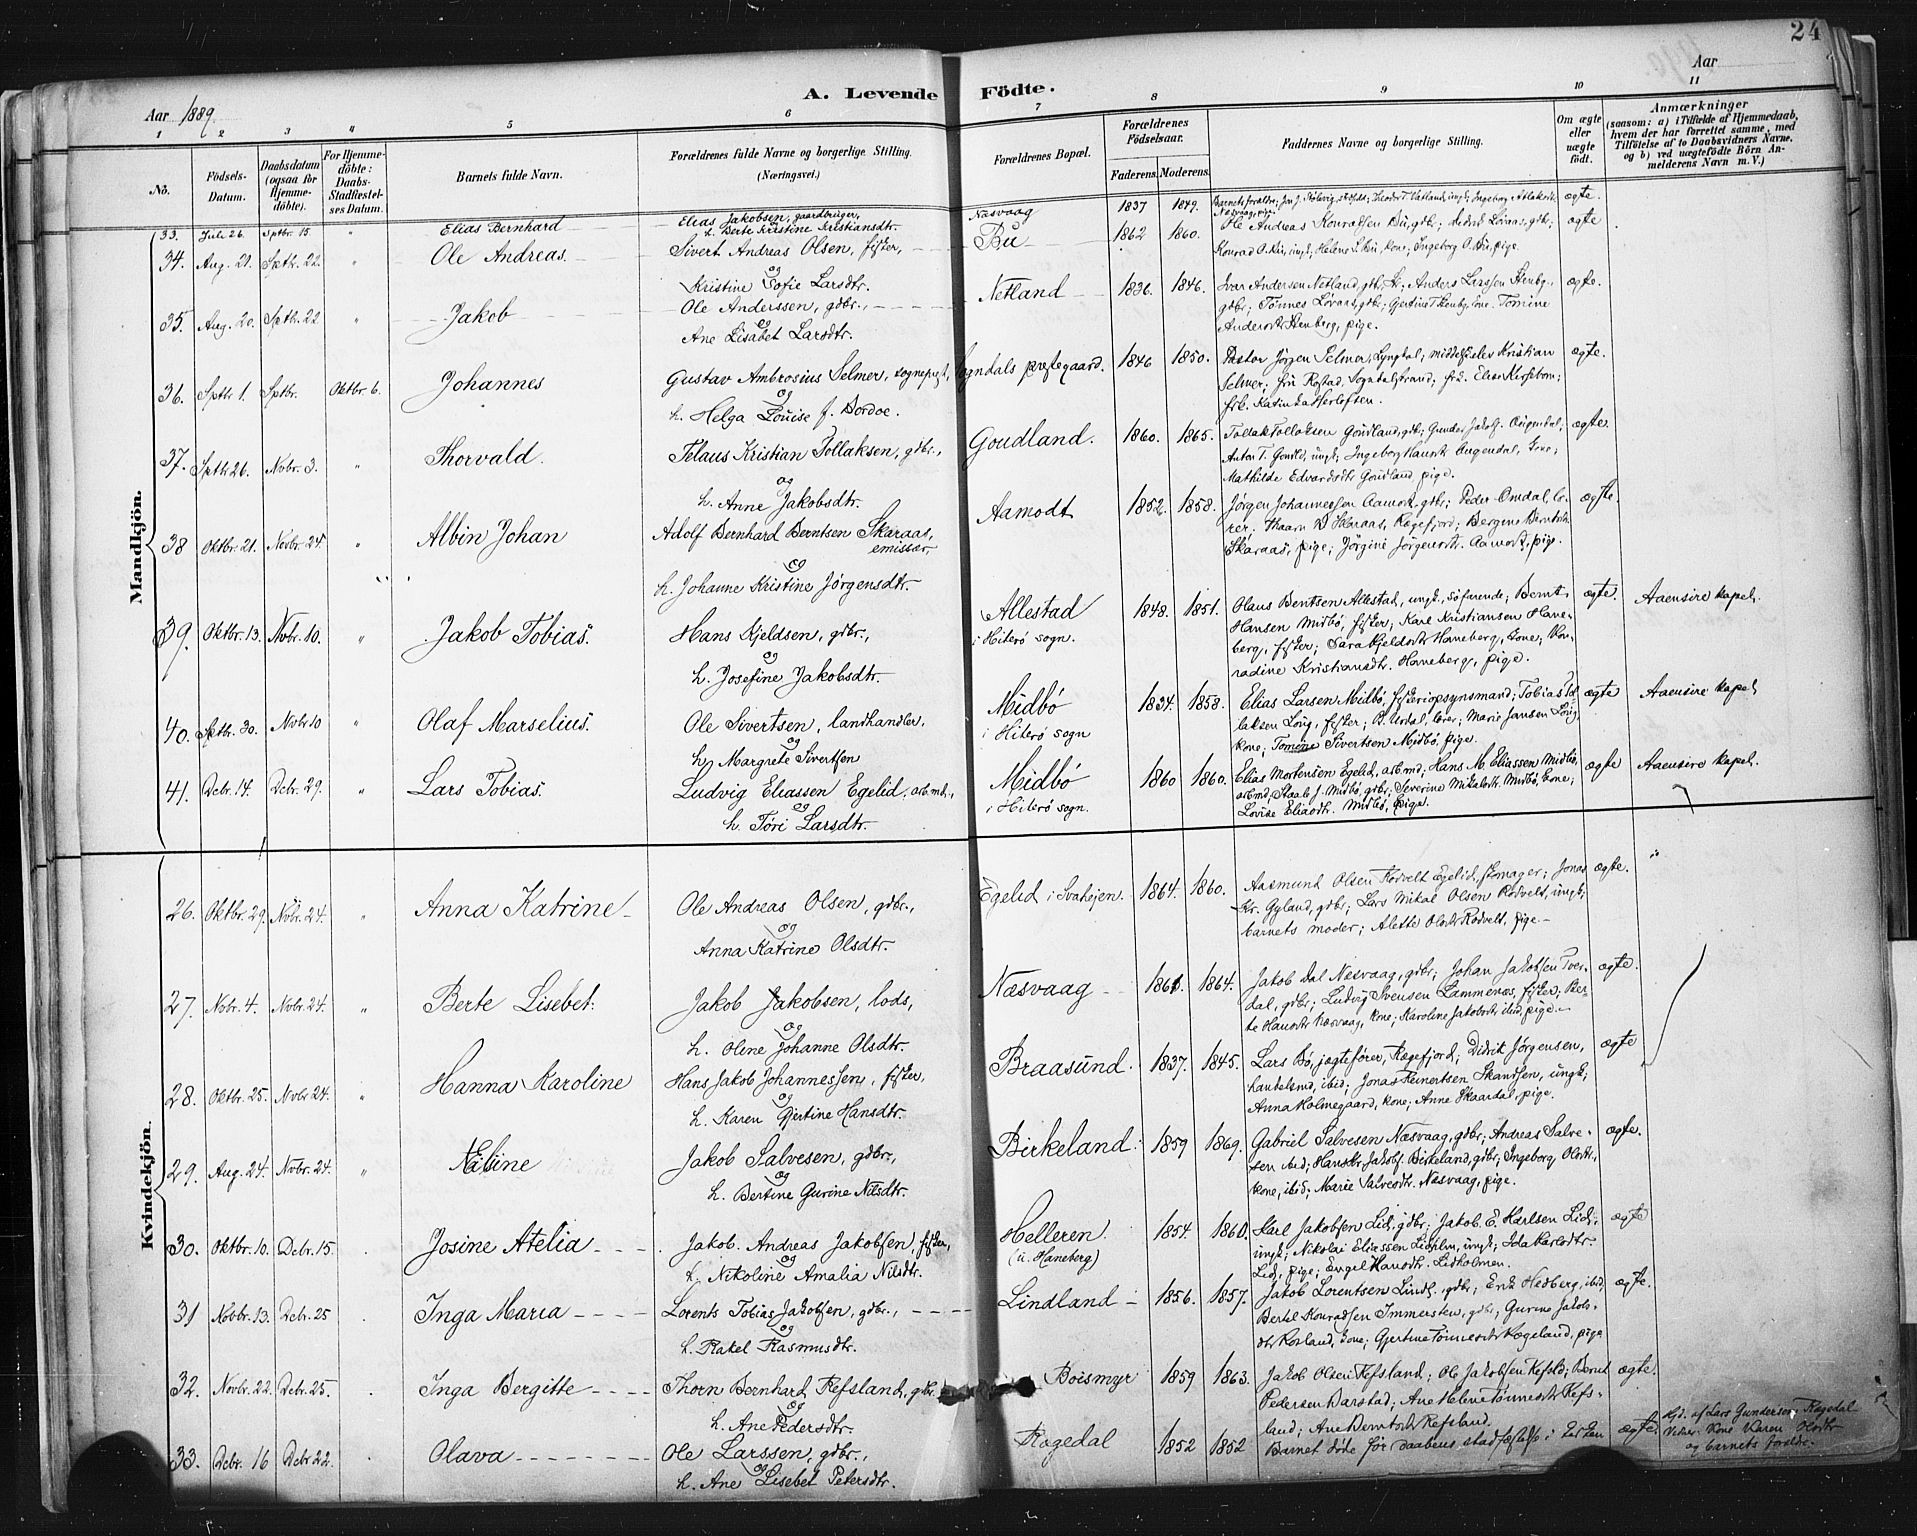 24
Aar 1889.
A. Levende Födte.
Aar
1 2 3 " 5 6 7 8 9 10 11
No.
Födsels-Datum.
Daabsdatum (ogsaa for Hjemme-döbte).
For Hjemme-döbte: Daabs-Stadfæstel-ses Datum.
Barnets fulde Navn.
Forældrenes fulde Navne og borgerlige Stilling.
(Næringsvei.)
Forældrenes Bopæl.
Forældrenes Födselsaar.
Faderens. Moderens.
Faddernes Navne og borgerlige Stilling.
Om ægte eller uægte födt.
Anmærkninger
(saasom: a) i Tilfælde af Hjemmedaab, hvem der har forrettet samme, med Tilföielse af to Daabsvidners Navne, og b) ved uægtefödte Börn An-melderens Navn m. V.)
Mandkjön.
33. Juli 26. Sptbr. 15. " Elias Bernhard Elias Jakobsen, gaardbruger, Næsvaag 1837 1849. ægte.
h. Berte Kristine Kristiansdtr.
34. Aug. 21. Sptbr. 22. " Ole Andreas Sivert Andreas Olsen, fisker, Bu 1862 1860. Ole Andreas Konradsen Bu, gdbr; ægte
og
Kristine Sofie Larsdtr.
Konrad O. Bu, ungk; Helene S. Bu, kone; Ingeborg O. Bu, pige.
35. Aug. 20. Sptbr. 22 " Jakob Ole Anderssen, gdbr., Netland 1836. 1846. Ivar Andersen Netland, gdbr; Anders Larssen Stenbg., ægte.
og
Ane Lisabet Larsdtr.
gdbr; Tönnes Lovaas, gdbr; Gjertine T. Stenbg, kone. Tomine
Andersdtr. Stenberg, pige.
36. Sptbr. 1. Sptbr. Oktbr. 6. Johannes Gustav Ambrosius Selmer, sognepræst, Sogndals præstegaard. 1846 1850. Pastor Jörgen Selmer, Lyngdal; Kristian ægte.
og
h. Helga Louise f. Bordoe.
Selmer; fru Rostad, Sogndalstrand; frk. Elise Kierschow;
frk. Katinka Herlofsen.
37. Sptbr 26. Novbr. 3. " Thorvald. Telaus Kristian Tollaksen, gdbr., Goudland. 1860. 1865. Tollak Tollaksen Goudland, gdbr; ægte.
og
h. Anne Jakobsdtr.
Anton T. Goudld, ungk;
Mathilde Edvardsdtr Goudland, pige.
38 Oktbr. 21. Novbr. 24. " Albin Johan Adolf Bernhard Berntsen Skaraas, emissær, Aamodt 1852. 1858. Jörgen Johannessen Aamodt, gdbr; Peder Omdal, læ- ægte.
og
h. Johanne Kristine Jörgensdtr.
rer; Skaraas, Rægefjord; Bergine Berntsdtr.
Skaraas, pige; Jörgine Jörgensdtr. Aamodt, pige.
39. Oktbr. 13. Novbr. 10. " Jakob Tobias. Hans Kjeldsen, gdbr., Allestad i Hiterö sogn. 1848. 1851. Olaus Bentsen Allestad, ungk., söfarende; Bernt ægte. Aaensire kapel.
og
h. Josefine Jakobsdtr.
Hansen Midbö, fisker; Karl Kristiansen Hane-
berg, fisker; Sara Kjeldsdtr Haneberg, kone; Kon-
radine Kristiansdtr. Haneberg, pige.
40. Sptbr. 30. Novbr 10 " Olaf Marselius. Ole Sivertsen, landhandler, Midbö i Hiterö sogn 1834. 1858. Elias Larsen Midbö, fisteriopsynsmand; Tobias Tol- ægte Aaensire kapel
og
h. Margrete Sivertsen
laksen Loug, fisker; B. Urdal, lærer; Marie Jansen Loug,
kone; Tomine Sivertsen Midbö, pige.
41. Debr. 14. Debr. 29. " Lars Tobias. Ludvig Eliassen Egelid, arb.md., Midbö i Hiterö sogn. 1860 1860. Elias Mortensen Egelid, arbmd; Hans M. Eliassen Midbö, ægte Aaensire kapel.
og
h. Töri Larsdtr.
arbmd; Staale J. Midbö, gdbr; Severine Mikalsdtr. Midbö, kone;
Lovise Eliasdtr. Midbö, pige.
Kvindekjön.
26. Oktbr. 29. Novbr. 24. " Anna Katrine Ole Andreas Olsen, gdbr., Egelid i Svahejen. 1864. 1860. Aasmund Olsen Rödvelt Egelid, skomager; Jonas ægte. "
og
Anna Katrine Olsdtr.
Kr. Gyland, gdbr; Lars Mikal Olsen Rödvelt, ungk;
barnets moder; Alette Olsdtr Rödvelt, pige
27. Novbr. 4. Novbr. 24. " Berte Lisebet. Jakob Jakobsen, lods, Næsvaag 1861. 1864. Jakob Dal Næsvaag, gdbr; Johan Jakobsen Tver- ægte.
og
h. Oline Johanne Olsdtr.
dal, gdbr; Ludvig Svensen Lammenæs, fisker; Ber-
te Hansdtr Næsvaag, kone; Karoline Jakobsdtr ibid, pige.
28. Oktbr. 25. Novbr 24. " Hanna Karoline Hans Jakob Johannessen, fisker, Braasund. 1837. 1845. Lars Bö, jagtefører, Rægefjord; Didrik Jörgensen, ægte
og
h. Karen Gjertine Hansdtr.
handelsmd, ibid; Jonas Reinertsen Skandsen, ungk;
Anna Holmegaard, kone; Anne Skaardal, pige.
29. Aug. 24. Novbr. 24. " Neline Jakob Salvesen, gdbr., Birkeland. 1859 1869. Gabriel Salvesen Næsvaag, gdbr; Andreas Salve- ægte.
og
h. Bertine Gurine Nilsdtr.
sen ibid; Hans Kr. Jakobs. Birkeland, gdbr; Ingeborg Olsdtr.,
kone, ibid; Marie Salvesdtr. Næsvaag, pige.
30. Oktbr. 10. Debr. 15. . Josine Atelia Jakob Andreas Jakobsen, fisker, Helleren. (u. Haneberg) 1854. 1860. Karl Jakobsen Lid, gdbr; Jakob E. Karlsen Lid, ægte
og
h. Nikoline Amalia Nilsdtr.
ungk; Nikolai Eliassen Lidholm, ungk; Ida Karlsdtr.
Lid, pige; Engel Hansdtr. Lidholmen.
31 Novbr. 13. Debr. 25 . Inga Maria Lorents Tobias Jakobsen, gdbr., Lindland 1856. 1857. Jakob Lorentsen Lindl., gdbr; Erik Hedberg, ibid; ægte.
og
h. Rakel Rasmusdtr.
Bertel Konradsen Immersten, gdbr; Gurine Jakobs-
dtr Rosland, kone; Gjertine Tönnesdtr Rægeland, pige
32. Novbr. 22. Debr. 25. . Inga Bergitte Thorn Bernhard Refsland, gdbr. Boismyr 1859 1863. Jakob Olsen Refsland; Ole Jakobsen Refsld; Bernt ægte.
og
h. Ane Pedersdtr.
Pedersen Barstad; Ane Helene Tönnesdtr Refs-
land; Ane Berntsdtr Refsland.
33. Debr. 16 Debr 22. . Olava Ole Larssen, gdbr., Rægedal 1852 1852 Barnet döde för daabens stadfæstelse i kirken ægte. Hjd. af Lars Gundersen Rægedal
og
h. Ane Lisebet Petersdtr.
Vidner: kone Karen Olsdtr
og barnets forældre.